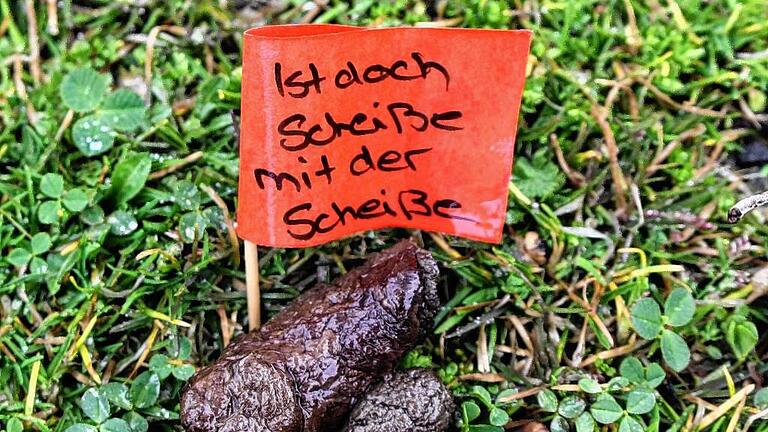 Ist doch
Scheiße
mit der
Scheiße